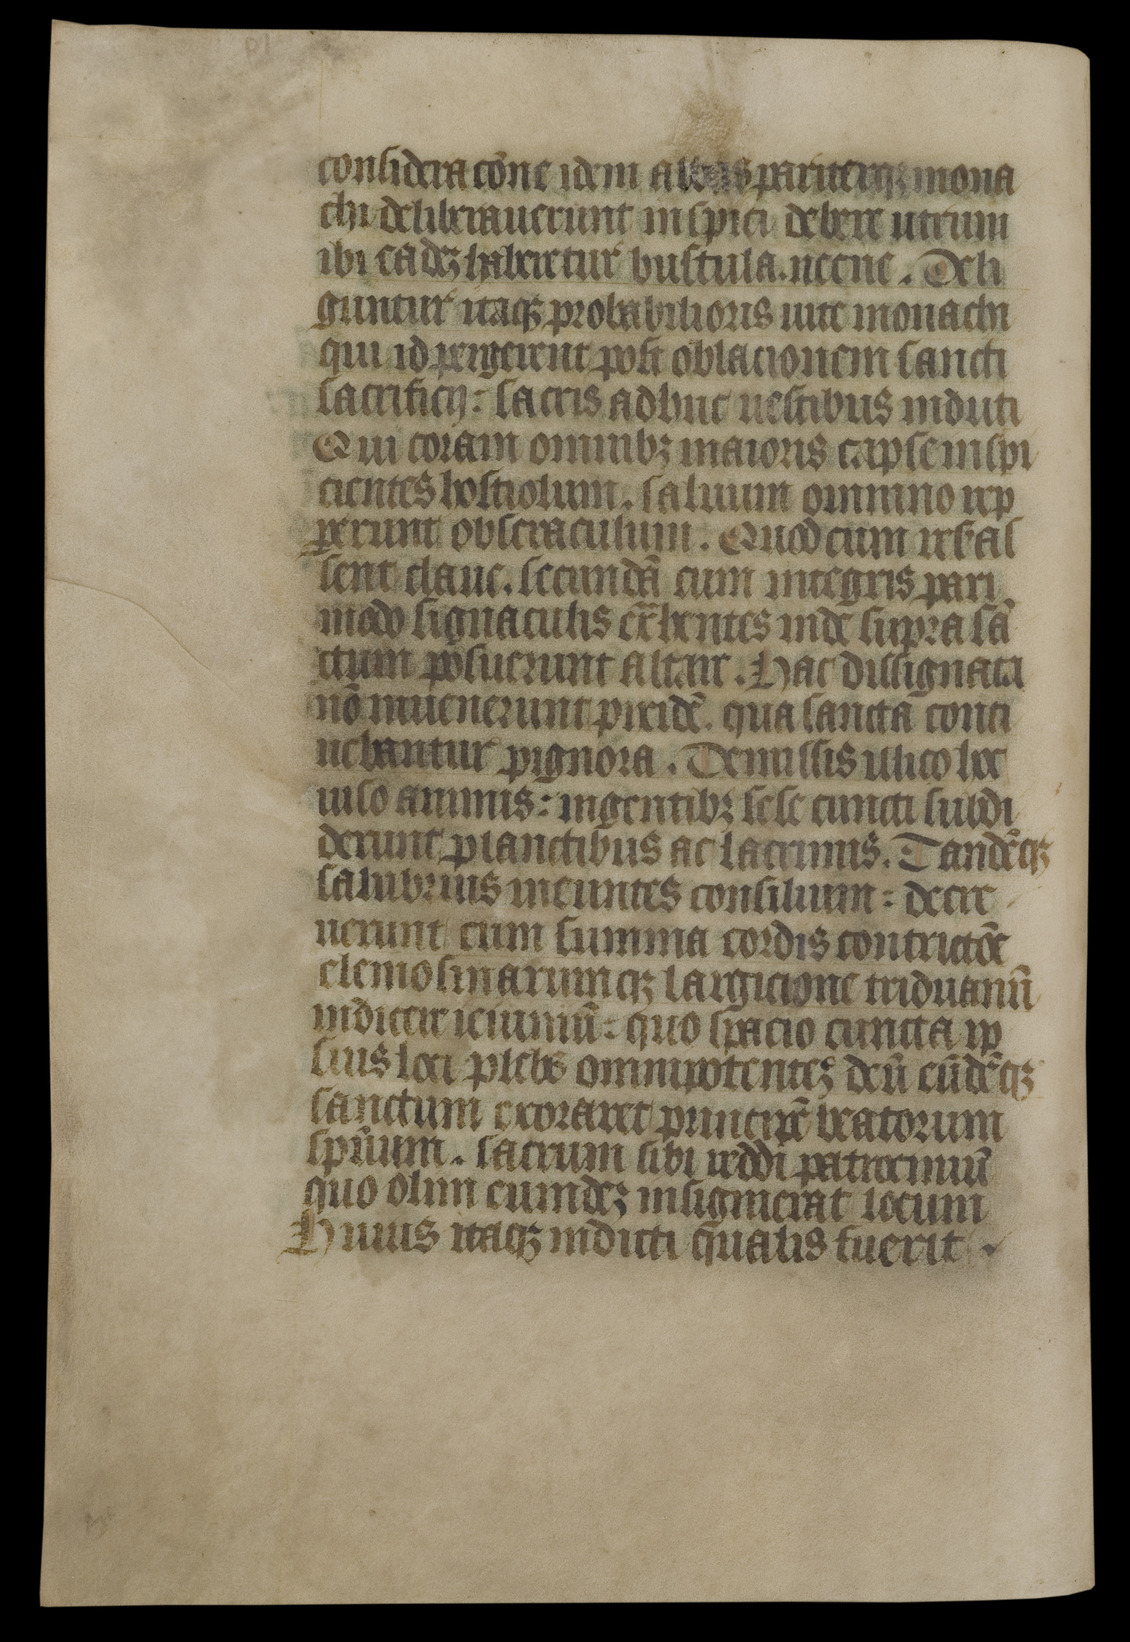 considerac̄one idem abbas pariterqꝫ mona
chi deliberauerunt inspici debere utrum
ibi eadeꝫ haberetur bustula. necne. Deli
guntur itaqꝫ probabilioris uite monachi
qui id pergerent post oblacionem sancti
sacrificij: sacris adhuc uestibus induti
Qui coram omnibꝫ maioris capse inspi
cientes hostiolum. saluum omnino rep
perunt obseraculum. Quod cum reseras
sent claue. secundā cum integris pari
modo signaculis ex̄hentes inde supra sā
ctum posuerunt altare. Hac dissignata
nō inuenerunt pixidē. qua sancta conti
nebantur pignora. Demissis ilico hoc
uiso animis: ingentibꝫ sese cuncti subdi
derunt planctibus ac lacrimis. Tandēqꝫ
salubrius ineuntes consilium: decre
uerunt cum summa cordis contricōe
elemosinarumqꝫ largicione triduanū
indicere ieiuniū: quo spacio cuncta ip
sius loci plebs omnipotenteꝫ deū eūdēqꝫ
sanctum exoraret principē beatorum
sp̄uum. sacrum sibi reddi patrociniū
quo olim eumdeꝫ insignierat locum
Huius itaqꝫ indicti qualis fuerit